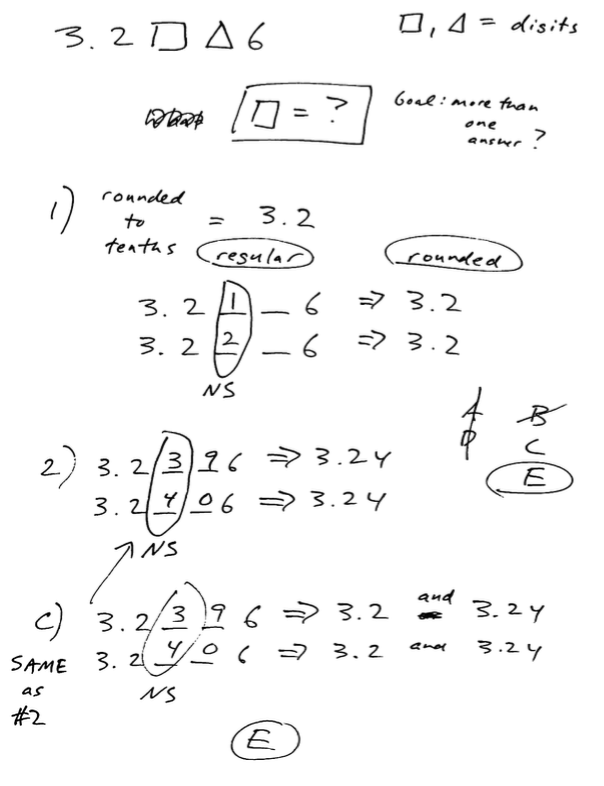 3.2 □ △ 6
□, △ = digits
□ = ?
Goal: more than
one
answer?
1) rounded
to
tenths
= 3.2
regular
rounded
3.2 1 _ 6 ⇒ 3.2
3.2 2 _ 6 ⇒ 3.2
NS
A B
D C
E
2) 3.2 3 9 6 ⇒ 3.24
3.2 4 0 6 ⇒ 3.24
NS
C) 3.2 3 9 6 ⇒ 3.2 and 3.24
3.2 4 0 6 ⇒ 3.2 and 3.24
SAME
as
#2
NS
E